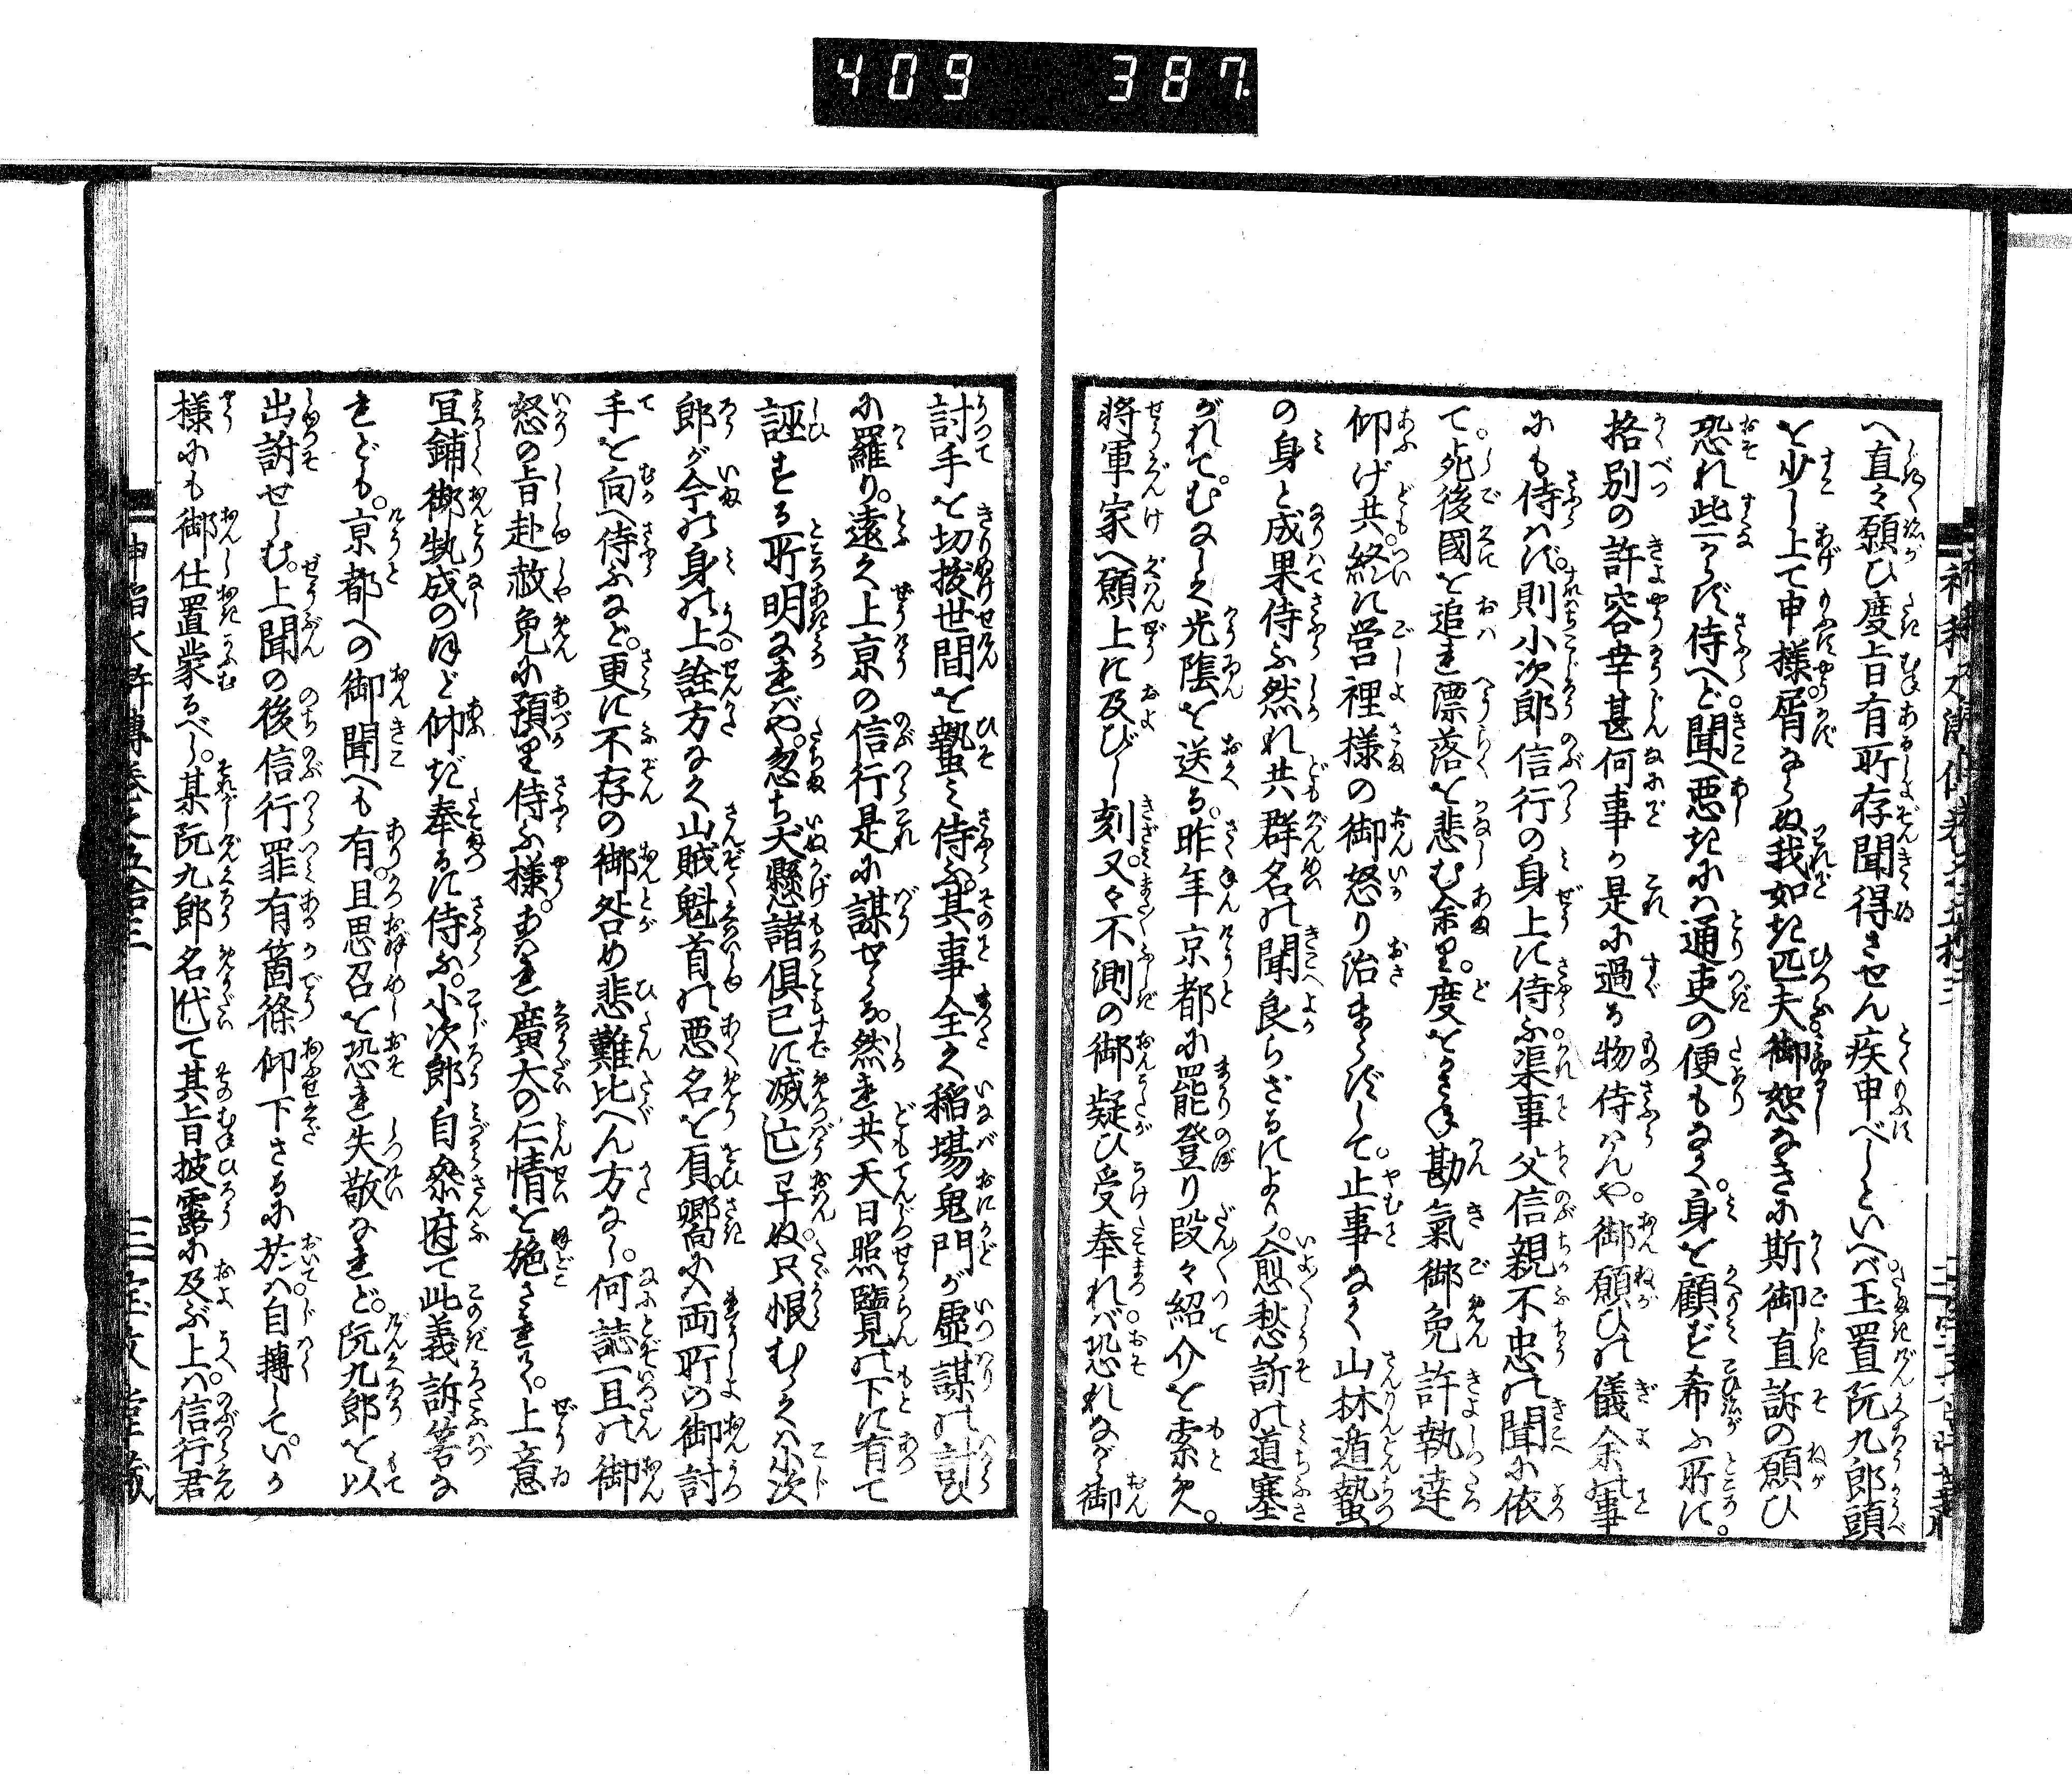 409 387
へ直々願ひ度旨有所存聞得させん疾申べしといへバ玉置阮九郎頭
を少し上て申様屑ならぬ我如き匹夫御恕なきに斯御直訴の願ひ
恐れ些からず侍へど聞へ悪きにハ通吏の便もなく。身を顧ず希ふ所に。
格別の許容幸甚何事か是に過る物侍はんや。御願ひの儀余の事
にも侍はず。則小次郎信行の身上に侍ふ渠事父信親不忠の聞に依
て。死後國を追れ漂落を悲む余里。度々勘氣御免許執達
仰げ共。終に営裡様の御怒り治まらずして。止事なく山林遁蟄
の身と成果侍ふ然れ共群名の聞良らざるにより。愈愁訴の道塞
がれて。むなしく光陰を送る。昨年京都に罷登り段々紹介を索め。
將軍家へ願上に及びし刻。又々不測の御疑ひ受奉れバ恐れながら御
討手を切抜世間を蟄み侍ふ。其事全く稲場鬼門が虚謀の計ひ
に羅り。遠く上京の信行是に謀せらる。然れ共天日照覽の下に有て
誣する所明なれバや。忽ち犬懸諸俱已に滅亡早ぬ。只恨むらくハ小次
郎が今の身の上。詮方なく山賊魁首の悪名を負。嚮に両所の御討
手を向へ侍ふなど。更に不存の御咎め悲難比へん方なし。何誌一旦の御
怒の旨赦免に預里侍ふ様。あハれ廣大の仁情を施されさく。上意
冝鋪御執成のほど仰ぎ奉るに侍ふ。小次郎自参府て此義訴筈な
れども。京都への御聞へも有。且思召を恐れ失敬なれど。阮九郎を以
出訴せしむ。上聞の後信行罪有箇條仰下さるに於ハ。自搏して。いか
様にも御仕置蒙るべし。某阮九郎名代して其旨披露に及ぶ上ハ。信行君